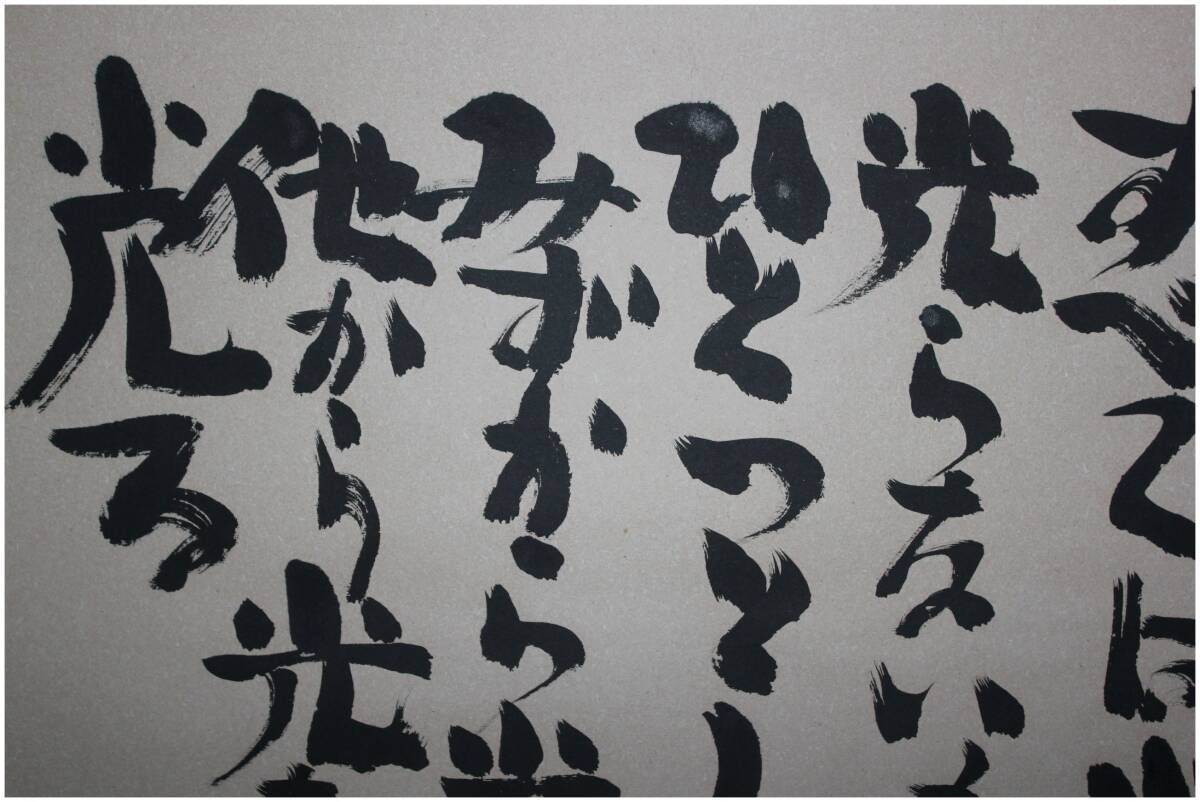 すべては
光らない
ひとつとし
みずから光
他から光
光る